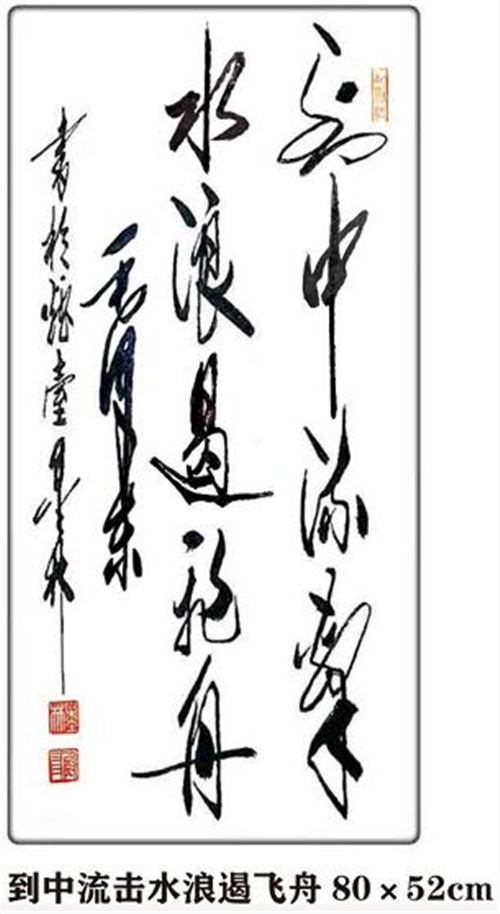 到中流擊
水浪遏飞舟
毛泽东
書於烟臺墨林
到中流击水浪遏飞舟 80×52cm